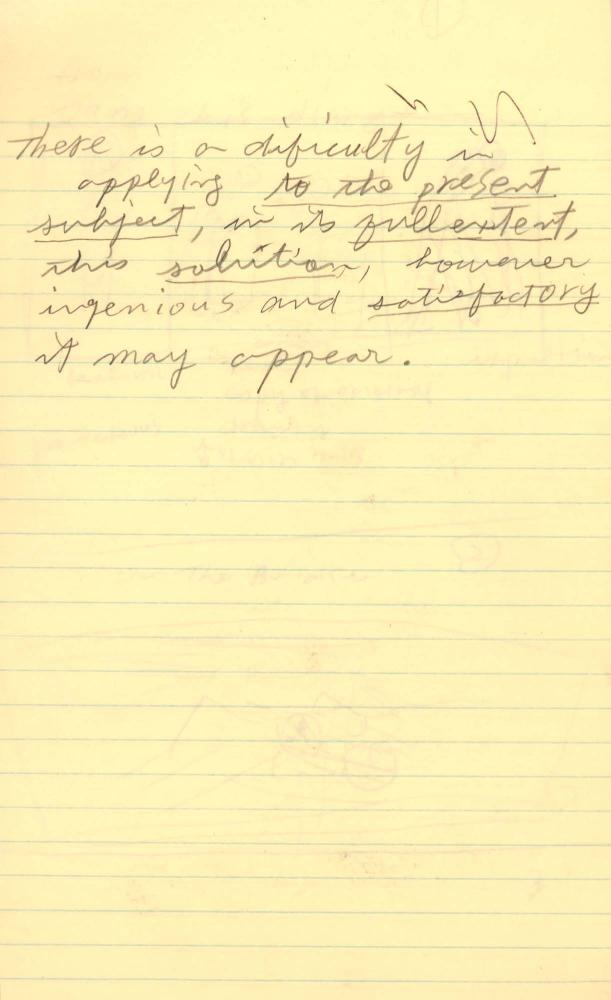 There is a dificulty in
applying to the present
subject, in its full extent,
this solution, however
ingenious and satisfactory
it may appear.